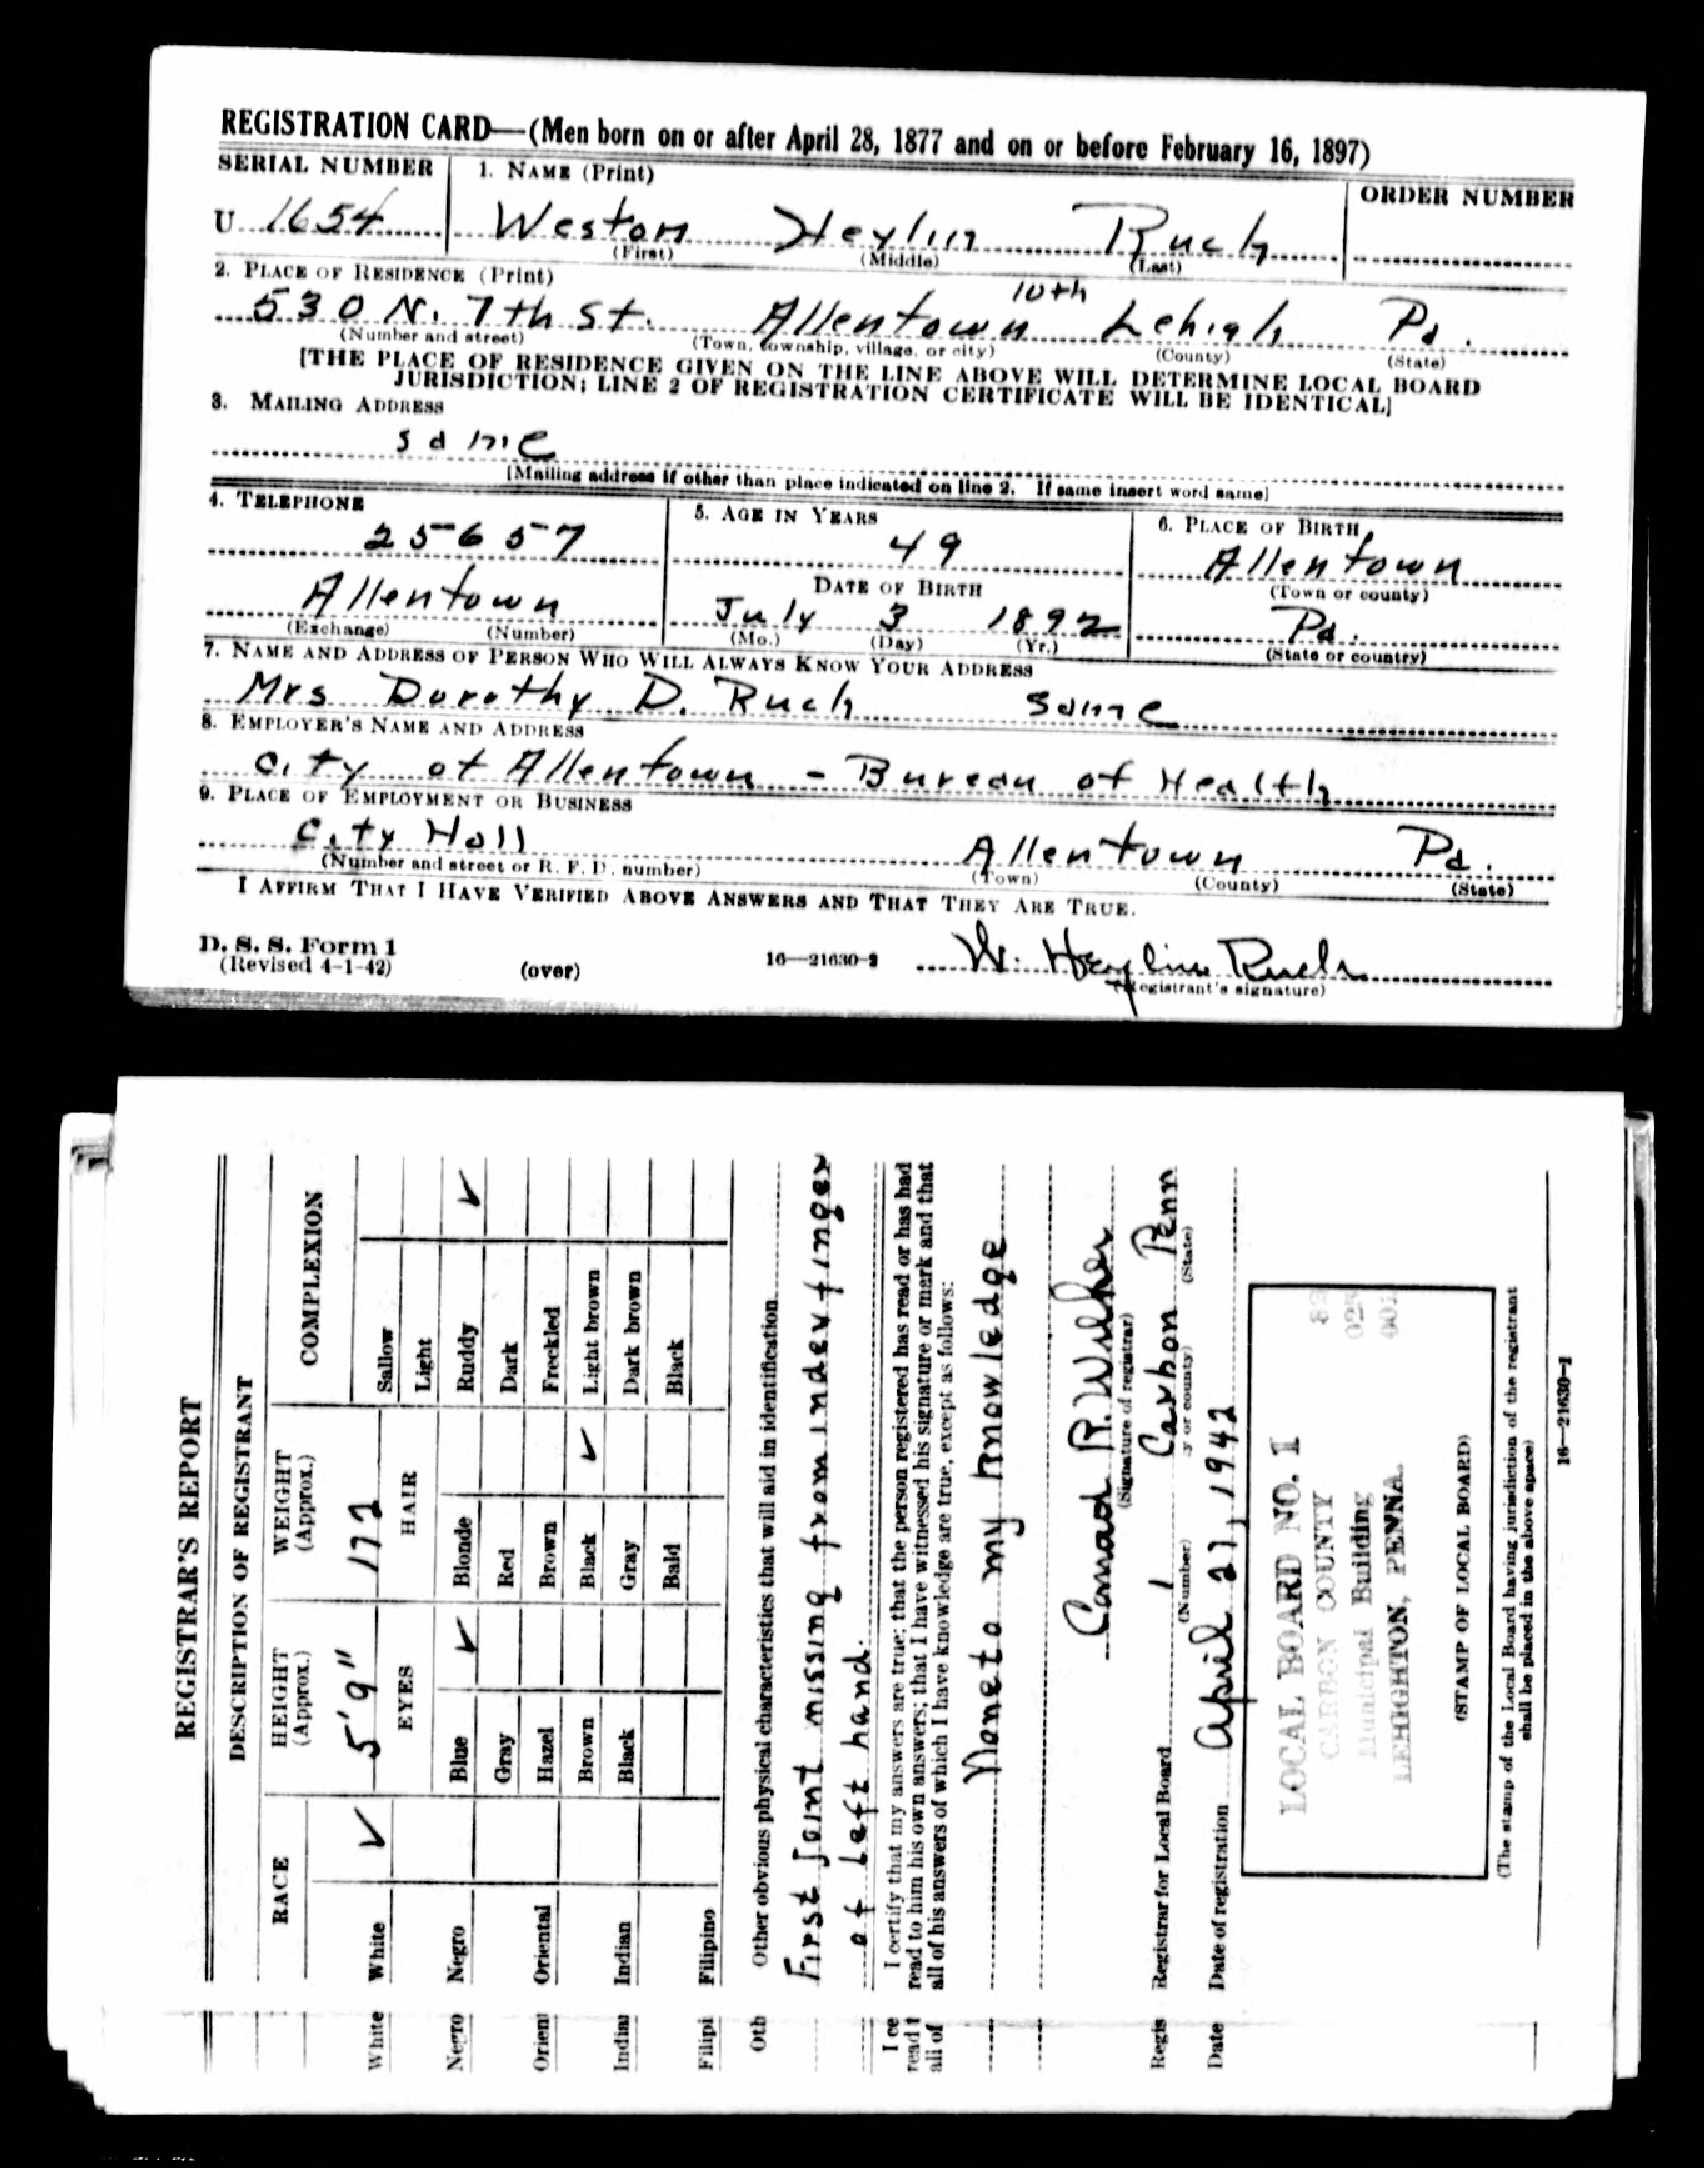 REGISTRATION CARD—(Men born on or after April 28, 1877 and on or before February 16, 1897)
SERIAL NUMBER
1. NAME (Print)
ORDER NUMBER
U 1654
Weston Heylin Ruch
(First) (Middle) (Last)
2. PLACE OF RESIDENCE (Print)
10th
530 N. 7th St. Allentown Lehigh Pa.
(Number and street) (Town, township, village, or city) (County) (State)
[THE PLACE OF RESIDENCE GIVEN ON THE LINE ABOVE WILL DETERMINE LOCAL BOARD
JURISDICTION; LINE 2 OF REGISTRATION CERTIFICATE WILL BE IDENTICAL]
3. MAILING ADDRESS
same
[Mailing address if other than place indicated on line 2. If same insert word same]
4. TELEPHONE
5. AGE IN YEARS
6. PLACE OF BIRTH
25657
49
Allentown
(Town or county)
DATE OF BIRTH
Allentown
July 3 1892
Pa.
(Exchange) (Number)
(Mo.) (Day) (Yr.)
(State or country)
7. NAME AND ADDRESS OF PERSON WHO WILL ALWAYS KNOW YOUR ADDRESS
Mrs Dorothy D. Ruch same
8. EMPLOYER'S NAME AND ADDRESS
City of Allentown - Bureau of Health
9. PLACE OF EMPLOYMENT OR BUSINESS
City Hall Allentown Pa.
(Number and street or R. F. D. number) (Town) (County) (State)
I AFFIRM THAT I HAVE VERIFIED ABOVE ANSWERS AND THAT THEY ARE TRUE.
D. S. S. Form 1
(Revised 4-1-42) (over) 16—21630-2
W. Heylin Ruch
(Registrant's signature)
REGISTRAR'S REPORT
DESCRIPTION OF REGISTRANT
RACE
HEIGHT
(Approx.)
WEIGHT
(Approx.)
COMPLEXION
5'9" 172
EYES
HAIR
White ✓
Negro
Oriental
Indian
Filipino
Blue ✓
Gray
Hazel
Brown
Black
Blonde
Red
Brown
Black ✓
Gray
Bald
Sallow
Light
Ruddy ✓
Dark
Freckled
Light brown
Dark brown
Black
Other obvious physical characteristics that will aid in identification
First Joint missing from index finger
of Left hand.
I certify that my answers are true; that the person registered has read or has had
read to him his own answers; that I have witnessed his signature or mark and that
all of his answers of which I have knowledge are true, except as follows:
None to my Knowledge
(Signature of registrar)
Registrar for Local Board 1 Carbon Penn
(Number) (State)
Date of registration April 27, 1942
LOCAL BOARD NO. 1
CARBON COUNTY
Municipal Building
LEHIGHTON, PENNA.
(STAMP OF LOCAL BOARD)
(The stamp of the Local Board having jurisdiction of the registrant
shall be placed in the above space)
16—21630-2
White
Negro
Orient
Indian
Filipi
Oth
I ce
read t
all of
Regis
Date